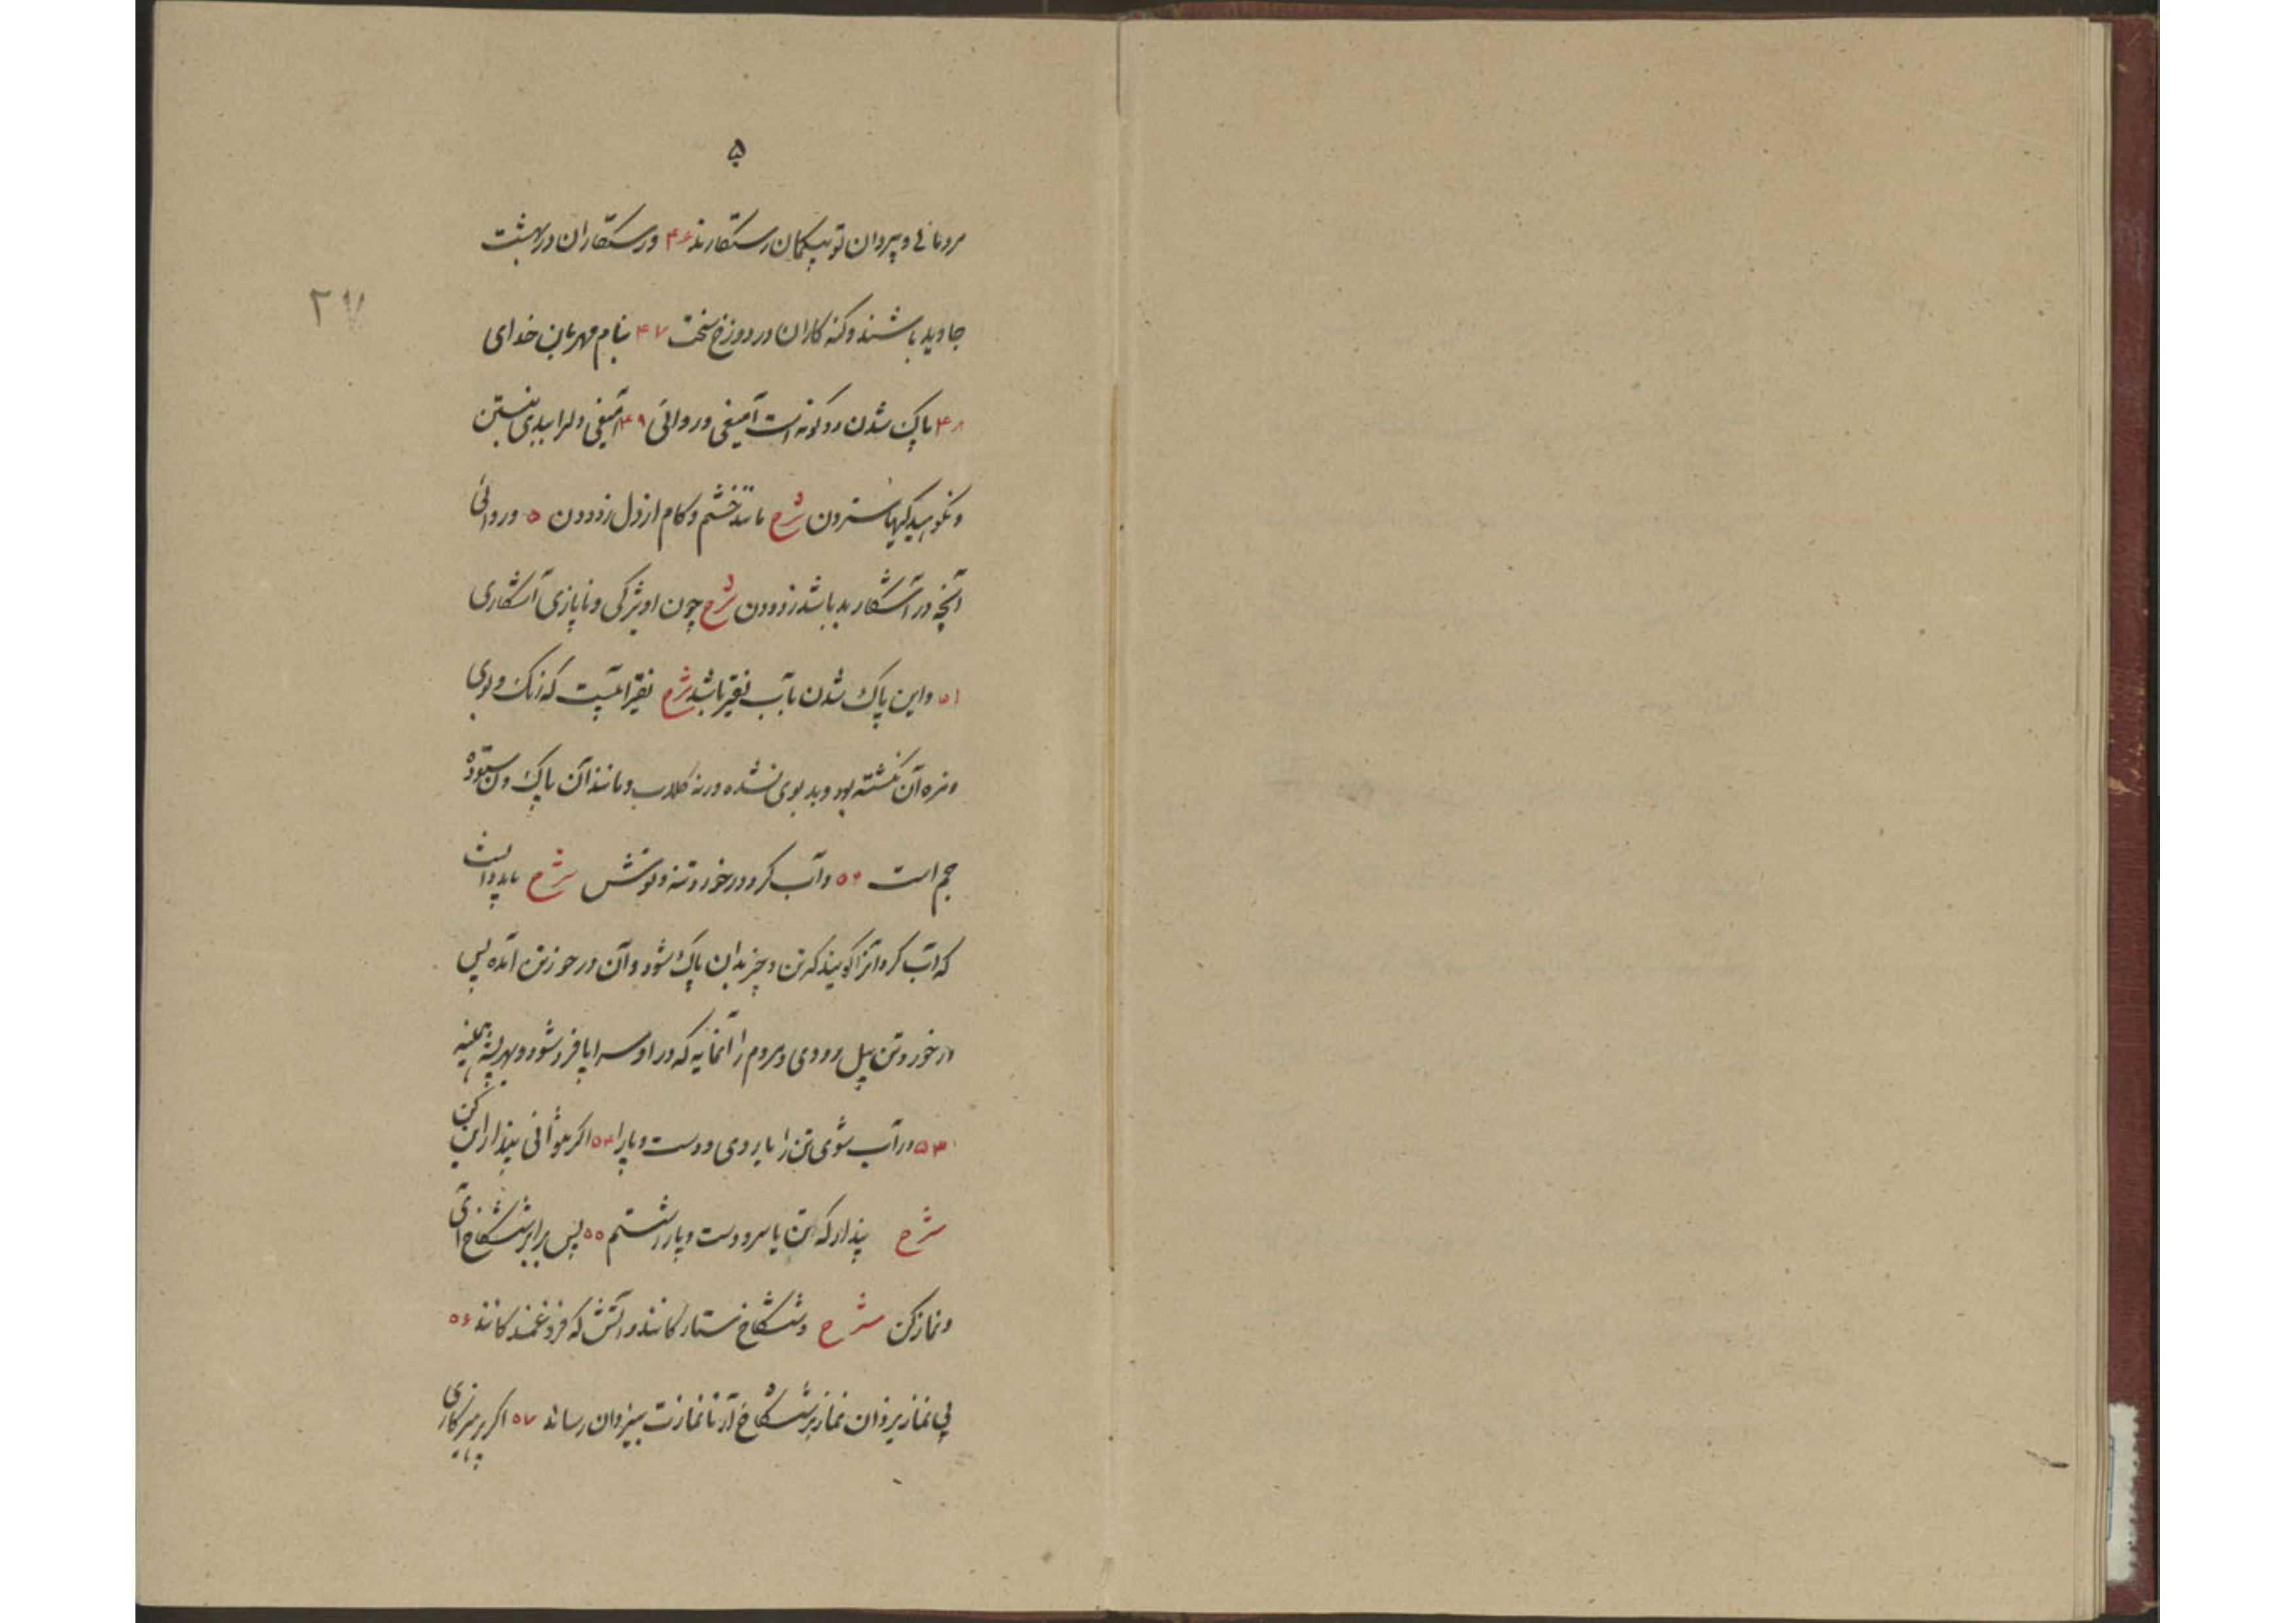 ۵
مردمانی و پیروان تو بیگمان رستگارند ۴۶ و رستگاران در بهشت
جاوید باشند و گنه کاران در دوزخ سخت ۴۷ بنام مهربان خدای
۲۷
۴۸ پاک شدن دو گونه است آمیغی و روائی ۴۹ آمیغی دلرا ببدی نبستن
و نکوهیدگیها ستردن شرح مانند خشم و کام از دل زدودن ۵۰ و روائی
آنچه در آشکار بد باشد زدودن شرح چون اویژگی و ناپازی آشکاری
۵۱ و این پاک شدن بآب یفتر باشد شرح آبیست که رنگ و بوی
و مزه آن نگشته بود و بد بوی نشده ورنه گلاب و مانند آن پاک و ستوده
است ۵۲ و آب کر در خور و تنه و توشش شرح باید دانست
که آب کر آنرا گویند که تن و چیز بدان پاک شود و آن در خور تن آمده پس
در خور و تن پیل رودی و مردم را آنمایه که در او سراپا فرو شود و بهر پشه
۵۳ در آب شوی تن را یا روی و دست و پا را ۵۴ اگر نتوانی پندار این کن
شرح پندار که تن یا سر و دست و پا را شستم ۵۵ پس برابر ششکاخ آی
و نماز کن شرح و ششکاخ ستارگانند و آتش که فروغمندگانند ۵۶
پی نماز یزدان نماز بر ششکاخ آر تا نمازت بیزدان رسانند ۵۷ اگر پرهیزگاری